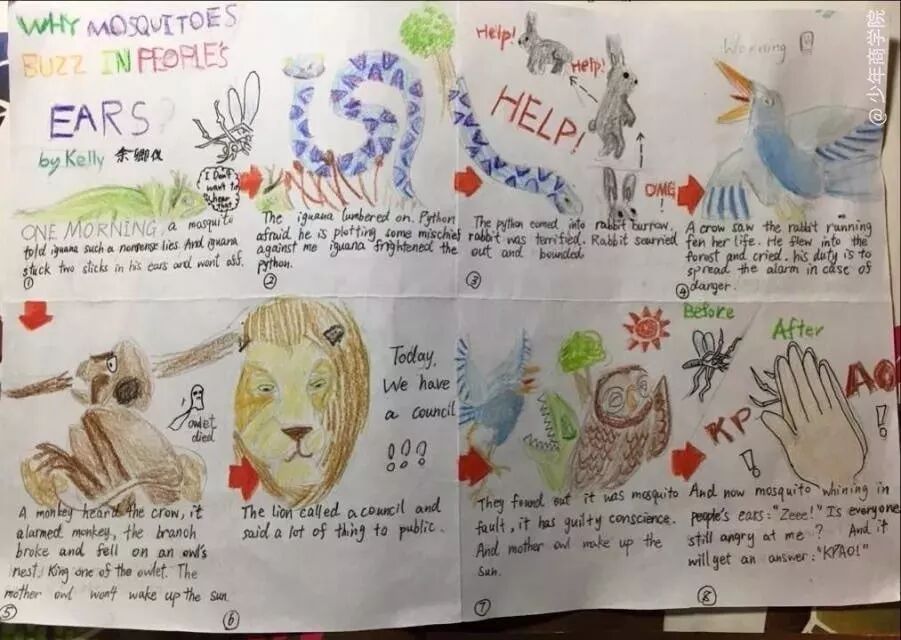 WHY MOSQUITOES
BUZZ IN PEOPLE'S
EARS?
by Kelly 余卿仪
I Don't
want to
hear
that
ONE MORNING, a mosquito
told iguana such a nonsense lies. And iguana
stuck two sticks in his ears and went off.
①
The iguana lumbered on. Python
afraid he is plotting some mischief
against me iguana frightened the
python.
②
Help!
Help!
HELP!
OMG
!
The python comed into rabbit burrow.
rabbit was terrified. Rabbit scurried
out and bounded.
③
Worning
A crow saw the rabbit running
fen her life. He flew into the
forest and cried. his duty is to
spread the alarm in case of
danger.
④
owlet
died
A monkey heard the crow, it
alarmed monkey, the branch
broke and fell on an owl's
nest, King one of the owlet. The
mother owl won't wake up the sun.
⑤
Today,
We have
a council
!!!
The lion called a council and
said a lot of thing to public.
⑥
They found out it was mosquito
fault, it has guilty conscience.
And mother owl wake up the
sun.
⑦
Before
After
KP
AO
!
!
And now mosquito whining in
people's ears: "Zeee!" Is everyone
still angry at me? And it
will get an answer: "KPAO!"
⑧
@少年商学院